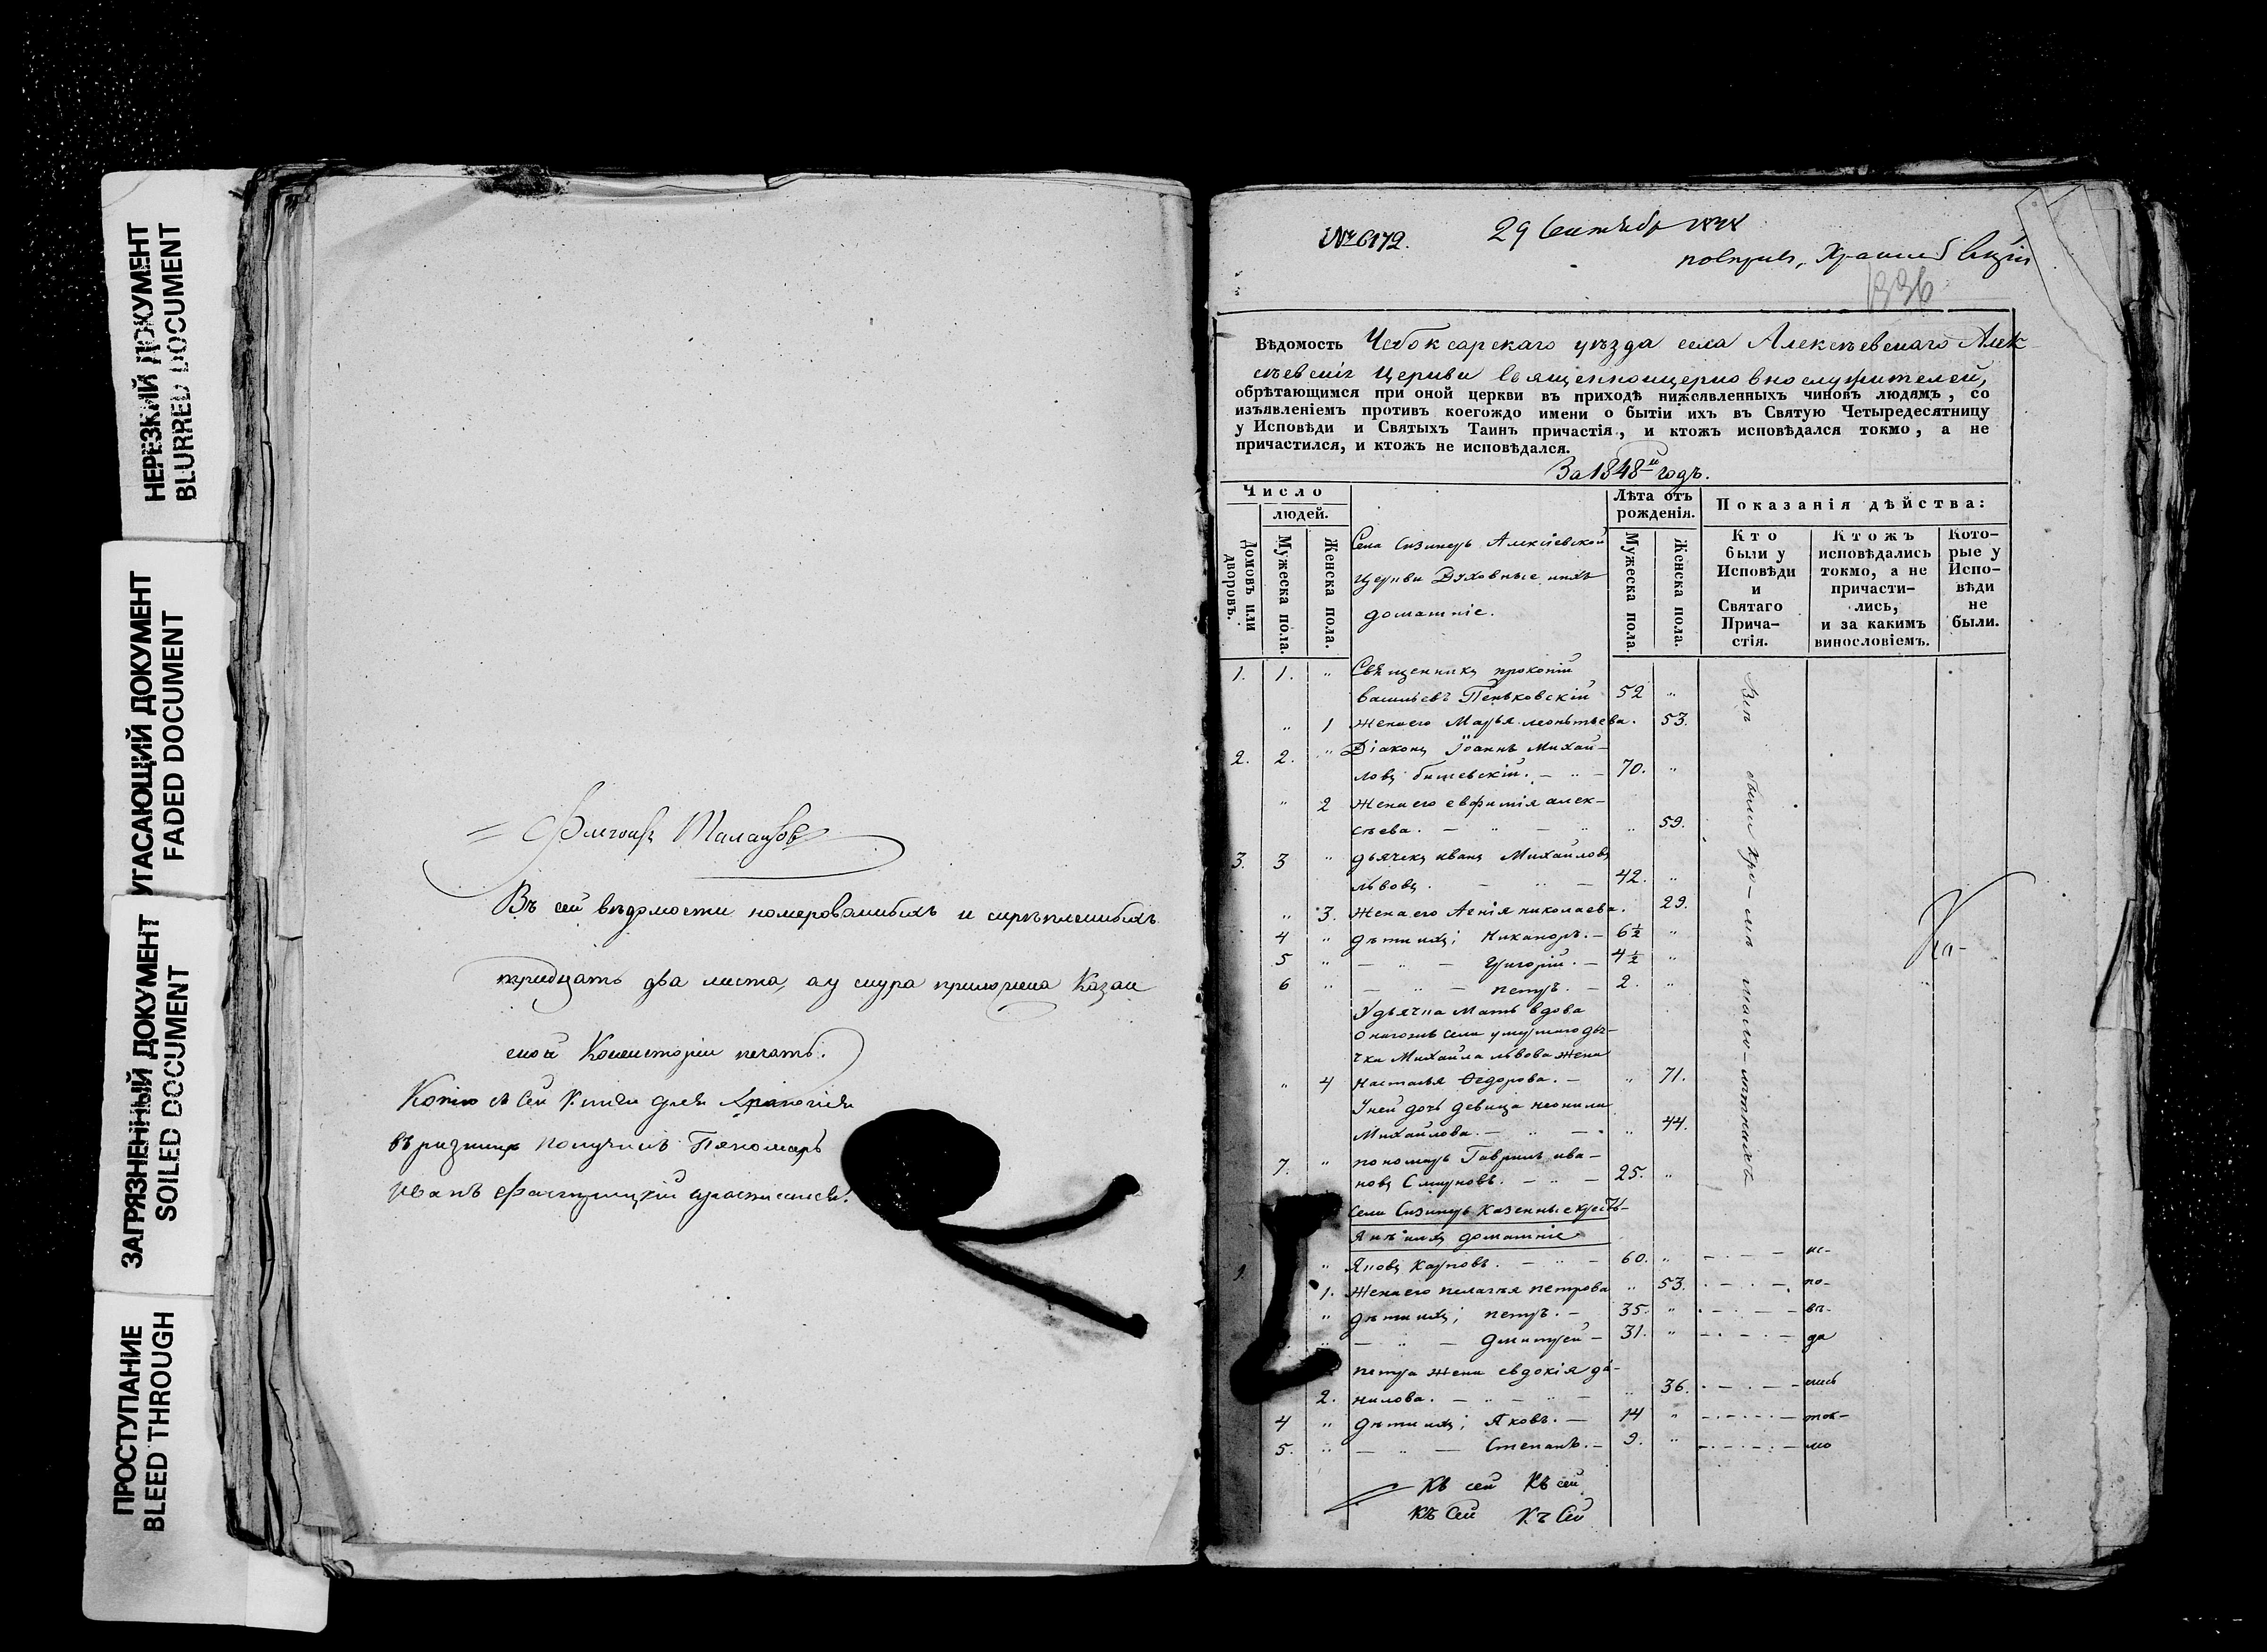 НЕРЕЗКИЙ ДОКУМЕНТ
BLURRED DOCUMENT
УГАСАЮЩИЙ ДОКУМЕНТ
FADED DOCUMENT
ЗАГРЯЗНЕННЫЙ ДОКУМЕНТ
SOILED DOCUMENT
ПРОСТУПАНИЕ
BLEED THROUGH
Въ сей вѣдомости номерованныхъ и скрѣпленныхъ
тридцать два листа, а у снура приложена Казан
ской Консисторіи печать.
Копію съ сей Книги для храненія
въ ризницѣ получилъ Пономарь
Иванъ
№ 6172. 29 Сентября
336
Вѣдомость Чебоксарскаго уѣзда села Алексѣевскаго Алек
сѣевскія Церкви Священноцерковнослужителей,
обрѣтающимся при оной церкви въ приходѣ нижеявленныхъ чиновъ людямъ, со
изъявленіемъ противъ коегождо имени о бытіи ихъ въ Святую Четыредесятницу
у Исповѣди и Святыхъ Таинъ причастія, и ктожъ исповѣдался токмо, а не
причастился, и ктожъ не исповѣдался.
За 1848й годъ.
Число
людей.
Домовъ или дворовъ.
Мужеска пола.
Женска пола.
Села Сизинеръ Алексіевской
Церкви Духовные ихъ
домашніе.
Лѣта отъ рожденія.
Мужеска пола.
Женска пола.
Показанія дѣйства:
Кто были у Исповѣди и Святаго Прича-стія.
Ктожъ исповѣдались токмо, а не причасти-лись, и за какимъ винословіемъ.
Кото-рые у Испо-вѣди не были.
1. 1. " Священникъ прокопій
васильевъ Пеньковскій 52 "
" 1 Жена его Марья леонтьева. 53.
2. 2. " Діаконъ Іоаннъ Михай-
ловъ бишевскій. — " — 70. "
" 2 Жена его евфимія алек-
сѣева. — " — " " 59.
3. 3 " дьячекъ иванъ Михайловъ
львовъ. — " — 42. "
" 3. Жена его Агнія николаева. 29.
4 " дѣти ихъ; Никаноръ. — 6½ "
5 " — " — Григорій. — 4½ "
6 " — " — петръ. — 2. "
У дьячка Мать вдова
онагожъ села умершаго дья-
чка Михаила львова жена
" 4 Настасья Ѳедорова. — " 71.
У ней дочь девица неонила
Михайлова. — " — " 44.
7. " пономарь Гаврилъ ива-
новъ Смирновъ. — " — 25. "
Села Сизинеръ Казенные кресть-
янѣ ихъ домашніе
" Яковъ Карповъ. — " — 60. " ис-
1. Жена его пелагея петрова " 53. по-
" дѣти ихъ; петръ. — 35. " вѣ-
" — " — дмитрей — 31. " да
петра жена евдокія да-
2. нилова. — " — " — " 36. лись
4 " дѣти ихъ; Яковъ. — 14 " ток-
5. " — " — Степанъ. — 9. " мо
Всѣ были
Къ сей Къ сей
Къ Сей Къ Сей